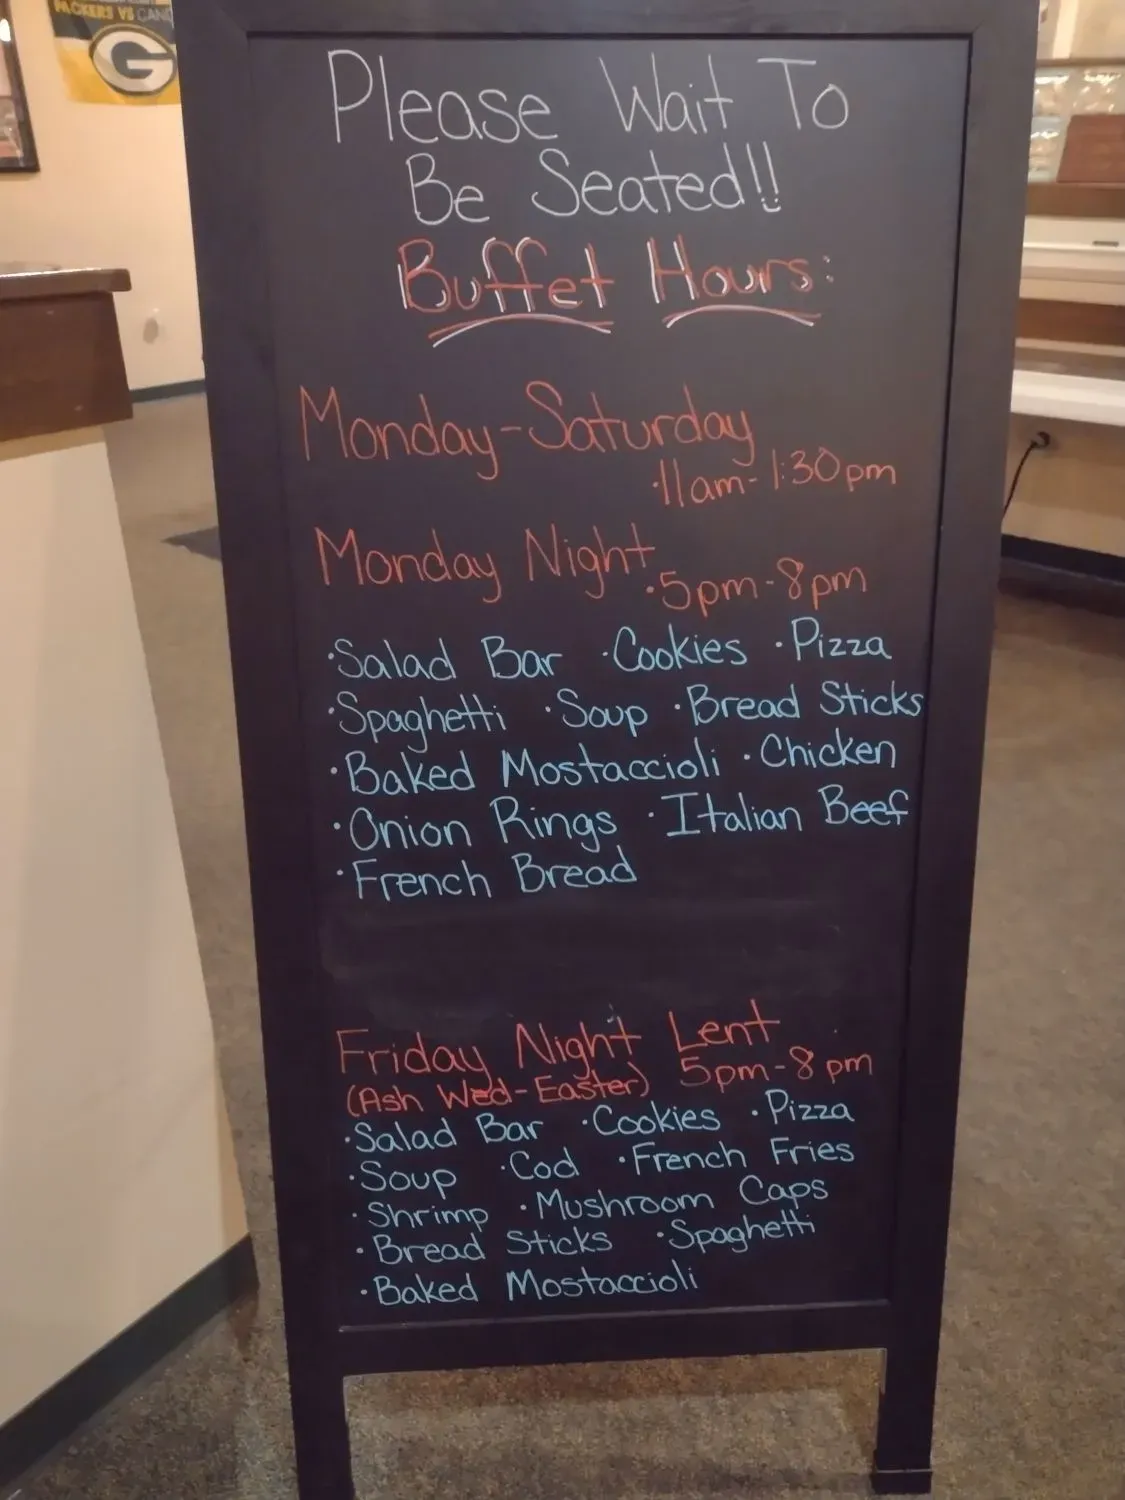 PACKERS VS
G
Please Wait To
Be Seated!!
Buffet Hours:
Monday-Saturday
·11am-1:30pm
Monday Night
·5pm-8pm
·Salad Bar ·Cookies ·Pizza
·Spaghetti ·Soup ·Bread Sticks
·Baked Mostaccioli ·Chicken
·Onion Rings ·Italian Beef
·French Bread
Friday Night Lent
(Ash Wed-Easter) 5pm-8pm
·Salad Bar ·Cookies ·Pizza
·Soup ·Cod ·French Fries
·Shrimp ·Mushroom Caps
·Bread Sticks ·Spaghetti
·Baked Mostaccioli